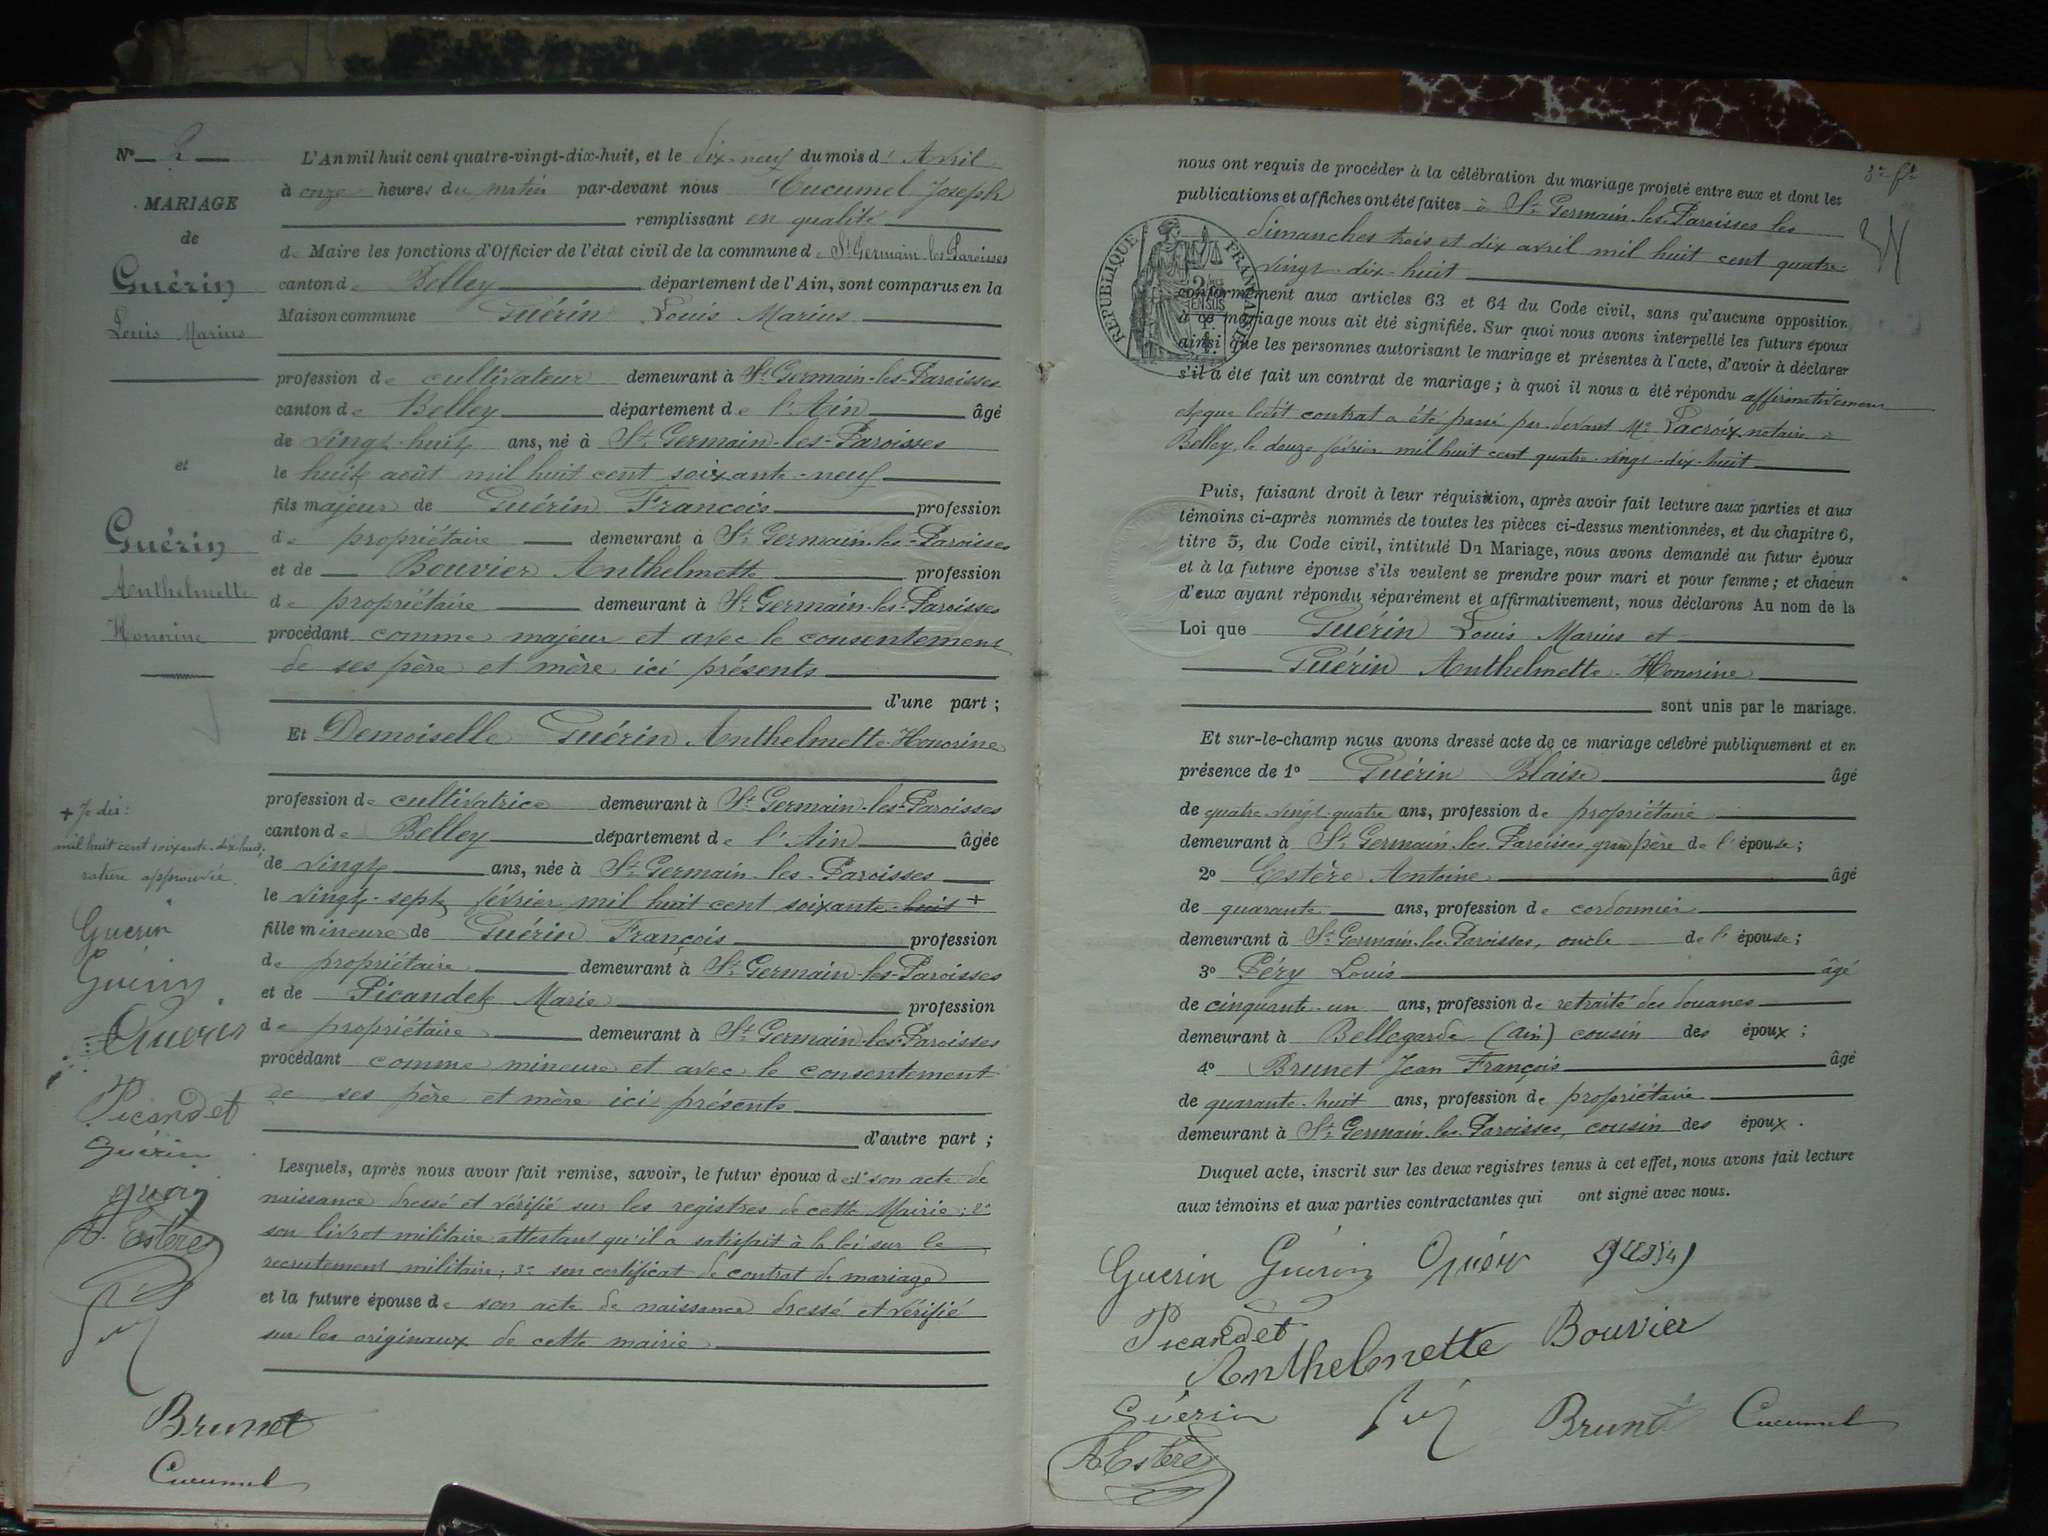 N° 2
MARIAGE
de
Guérin
Louis Marius
et
Guérin
Anthelmette
Honorine
+ Je dis:
mil huit cent soixante-dix-huit,
rature approuvée.
Guerin
Guérin
Guérin
Picandet
Guérin
A. Estère
Brunet
Cucumel
L'An mil huit cent quatre-vingt-dix-huit, et le dix-neuf du mois d' Avril
à onze heures du matin par-devant nous Cucumel Joseph
remplissant en qualité
de Maire les fonctions d'Officier de l'état civil de la commune de St Germain-les-Paroisses
canton de Belley département de l'Ain, sont comparus en la
Maison commune Guérin Louis Marius
profession de cultivateur demeurant à St Germain-les-Paroisses
canton de Belley département de l'Ain âgé
de vingt-huit ans, né à St Germain-les-Paroisses
le huit août mil huit cent soixante-neuf
fils majeur de Guérin François profession
de propriétaire demeurant à St Germain-les-Paroisses
et de Bouvier Anthelmette profession
de propriétaire demeurant à St Germain-les-Paroisses
procédant comme majeur et avec le consentement
de ses père et mère ici présents
d'une part;
Et Demoiselle Guérin Anthelmette-Honorine
profession de cultivatrice demeurant à St Germain-les-Paroisses
canton de Belley département de l'Ain âgée
de vingt ans, née à St Germain-les-Paroisses
le vingt-sept février mil huit cent soixante-huit +
fille mineure de Guérin François profession
de propriétaire demeurant à St Germain-les-Paroisses
et de Picandet Marie profession
de propriétaire demeurant à St Germain-les-Paroisses
procédant comme mineure et avec le consentement
de ses père et mère ici présents
d'autre part;
Lesquels, après nous avoir fait remise, savoir, le futur époux de 1° son acte de
naissance dressé et vérifié sur les registres de cette Mairie; 2°
son livret militaire attestant qu'il a satisfait à la loi sur le
recrutement militaire; 3° son certificat de contrat de mariage
et la future épouse de son acte de naissance dressé et vérifié
sur les originaux de cette mairie
nous ont requis de procéder à la célébration du mariage projeté entre eux et dont les
publications et affiches ont été faites à St Germain-les-Paroisses les
dimanches trois et dix avril mil huit cent quatre-
vingt-dix-huit
RÉPUBLIQUE FRANÇAISE
conformément aux articles 63 et 64 du Code civil, sans qu'aucune opposition
à ce mariage nous ait été signifiée. Sur quoi nous avons interpellé les futurs époux
ainsi que les personnes autorisant le mariage et présentes à l'acte, d'avoir à déclarer
s'il a été fait un contrat de mariage; à quoi il nous a été répondu affirmativement
et que ledit contrat a été passé par-devant Me Lacroix notaire à
Belley, le douze février mil huit cent quatre-vingt-dix-huit
Puis, faisant droit à leur réquisition, après avoir fait lecture aux parties et aux
témoins ci-après nommés de toutes les pièces ci-dessus mentionnées, et du chapitre 6,
titre 5, du Code civil, intitulé Du Mariage, nous avons demandé au futur époux
et à la future épouse s'ils veulent se prendre pour mari et pour femme; et chacun
d'eux ayant répondu séparément et affirmativement, nous déclarons Au nom de la
Loi que Guérin Louis Marius et
Guérin Anthelmette-Honorine
sont unis par le mariage.
Et sur-le-champ nous avons dressé acte de ce mariage célébré publiquement et en
présence de 1° Guérin Blaise âgé
de quatre-vingt-quatre ans, profession de propriétaire
demeurant à St Germain-les-Paroisses, grand père de l'épouse;
2° Estère Antoine âgé
de quarante ans, profession de cordonnier
demeurant à St Germain-les-Paroisses, oncle de l'épouse;
3° Péry Louis âgé
de cinquante-un ans, profession de retraité des douanes
demeurant à Bellegarde (Ain) cousin des époux;
4° Brunet Jean François âgé
de quarante-huit ans, profession de propriétaire
demeurant à St Germain-les-Paroisses, cousin des époux.
Duquel acte, inscrit sur les deux registres tenus à cet effet, nous avons fait lecture
aux témoins et aux parties contractantes qui ont signé avec nous.
Guerin Guérin
Picandet
Anthelmette Bouvier
Guérin Brunet Cucumel
A Estère